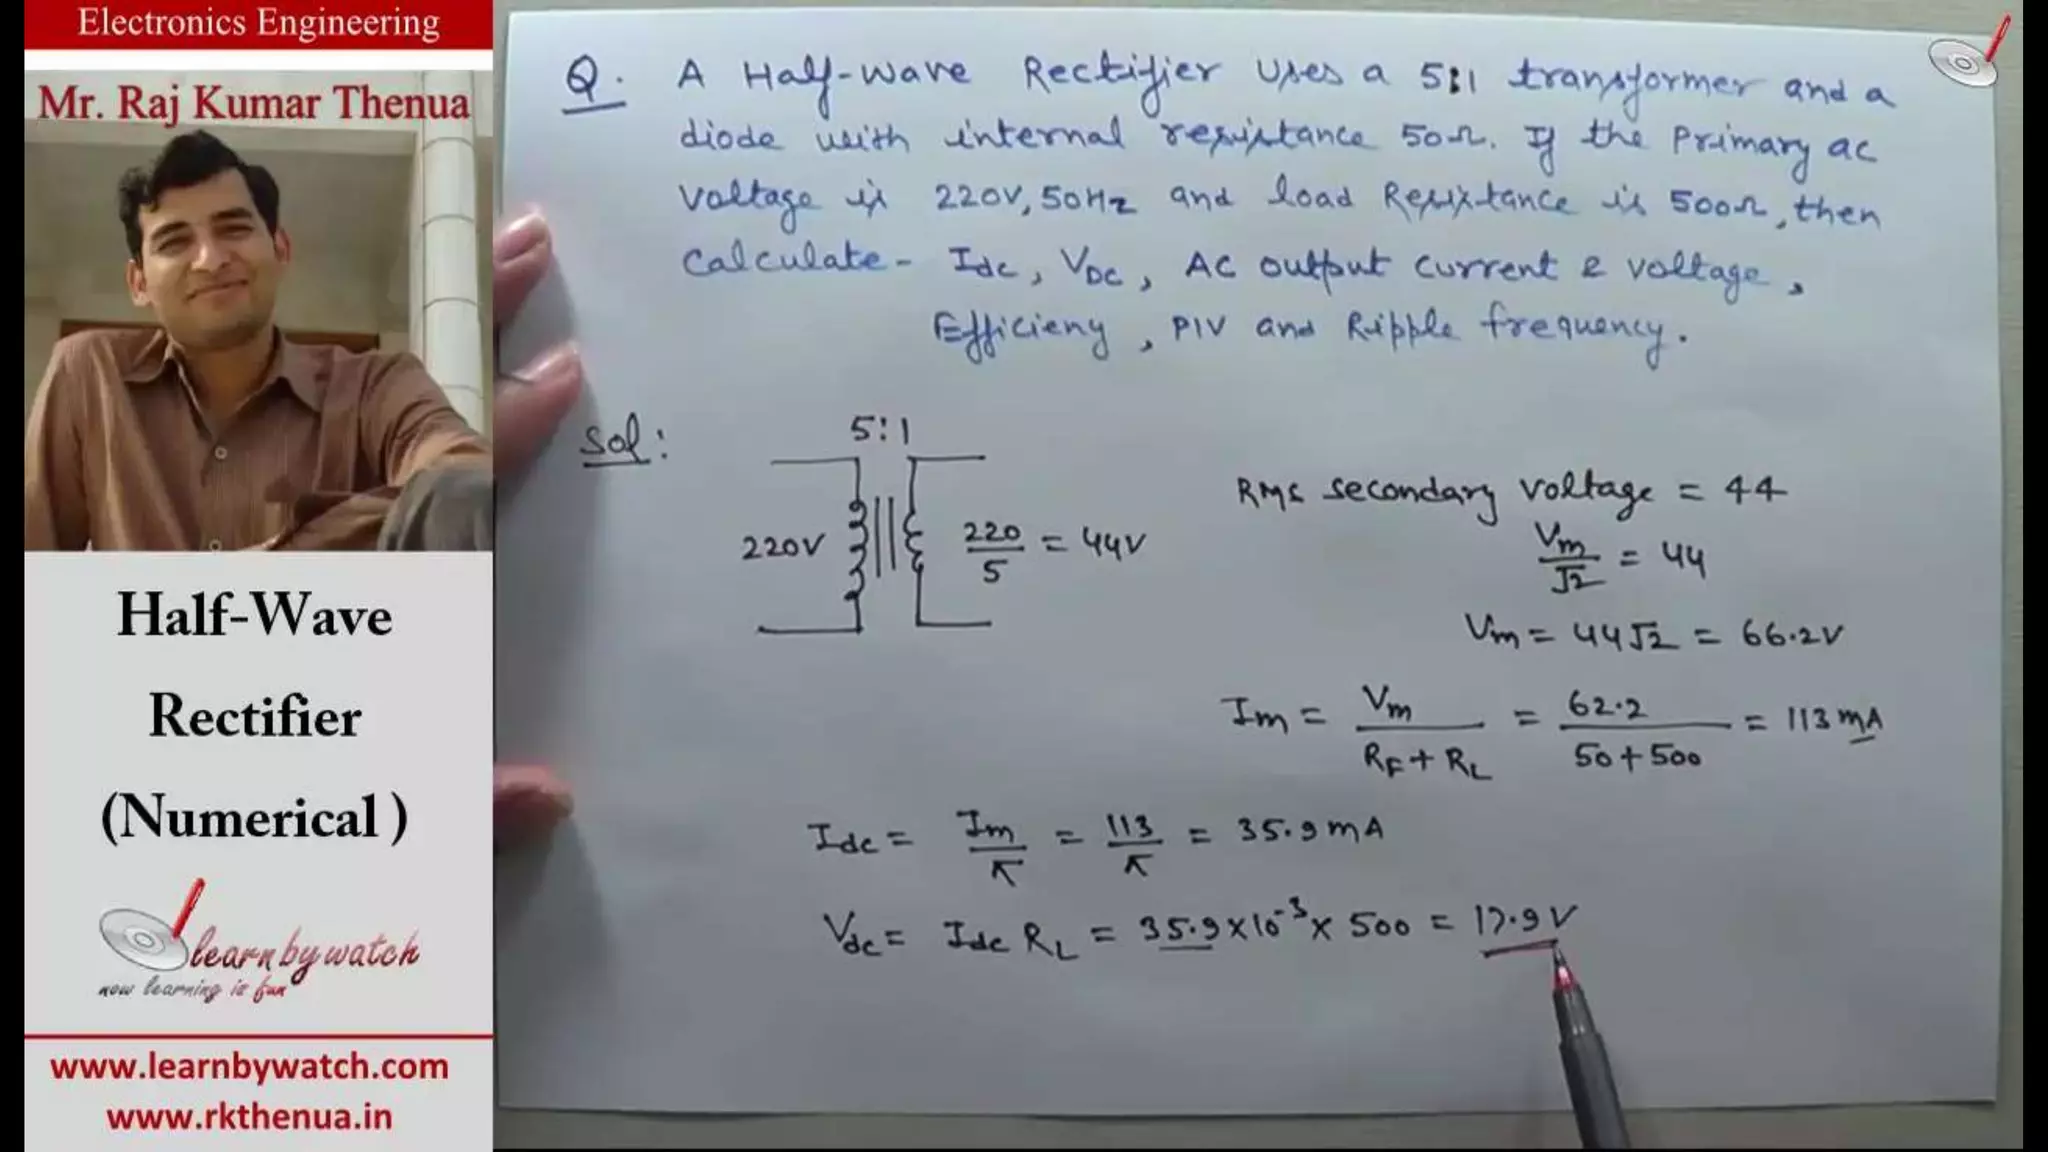 Electronics Engineering
Mr. Raj Kumar Thenua
Half-Wave
Rectifier
(Numerical)
learnbywatch
now learning is fun
www.learnbywatch.com
www.rkthenua.in
Q. A Half-wave Rectifier uses a 5:1 transformer and a
diode with internal resistance 50Ω. If the Primary ac
voltage is 220V, 50Hz and load Resistance is 500Ω, then
Calculate - Idc, VDC, AC output current & voltage,
Efficieny, PIV and Ripple frequency.
Sol:
5:1
220V
220/5 = 44V
RMS secondary voltage = 44
Vm/√2 = 44
Vm = 44√2 = 66.2V
Im = Vm/(RF + RL) = 62.2/(50+500) = 113 mA
Idc = Im/π = 113/π = 35.9 mA
Vdc = Idc RL = 35.9×10⁻³ × 500 = 17.9 V